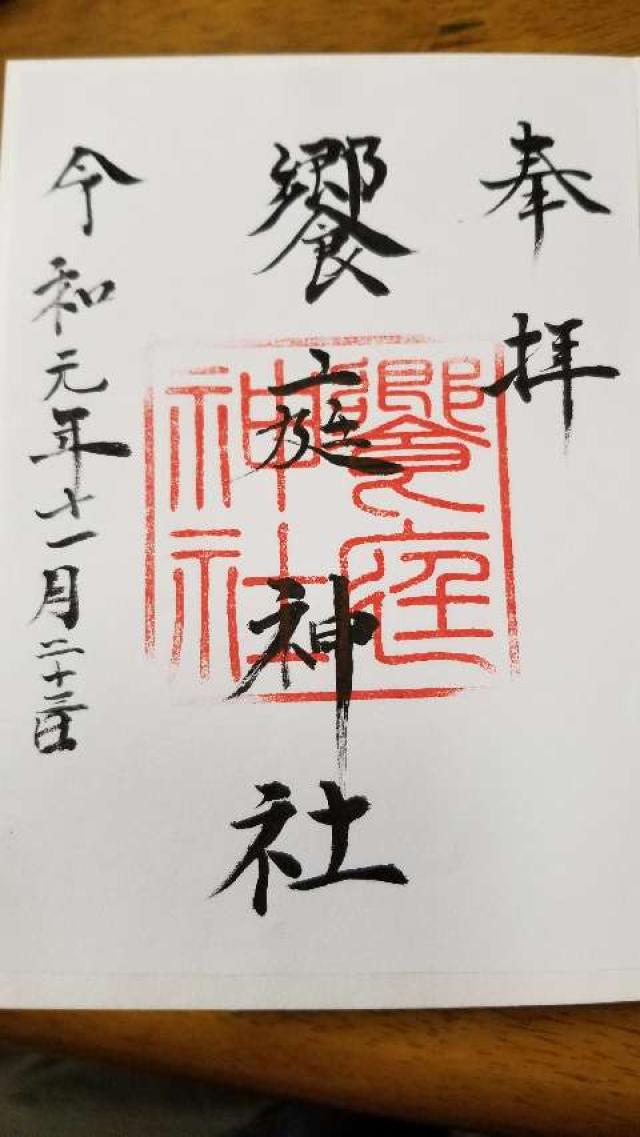 奉拝
饗庭神社
令和元年十一月二十三日
饗庭神社